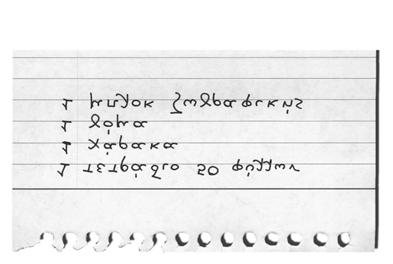 1 τετράδιο 50 φύλλων
1 χάρακα
1 γόμα
1 μπλοκ ζωγραφικής